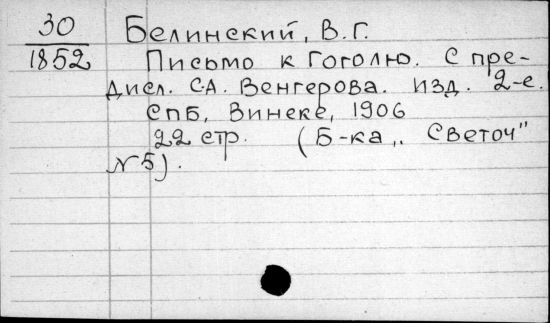 30
1852
Белинский, В.Г.
Письмо к Гоголю. С пре-
дисл. С.А. Венгерова. Изд. 2-е.
СПБ, Винеке, 1906
22 стр. (Б-ка „Светоч"
№5).